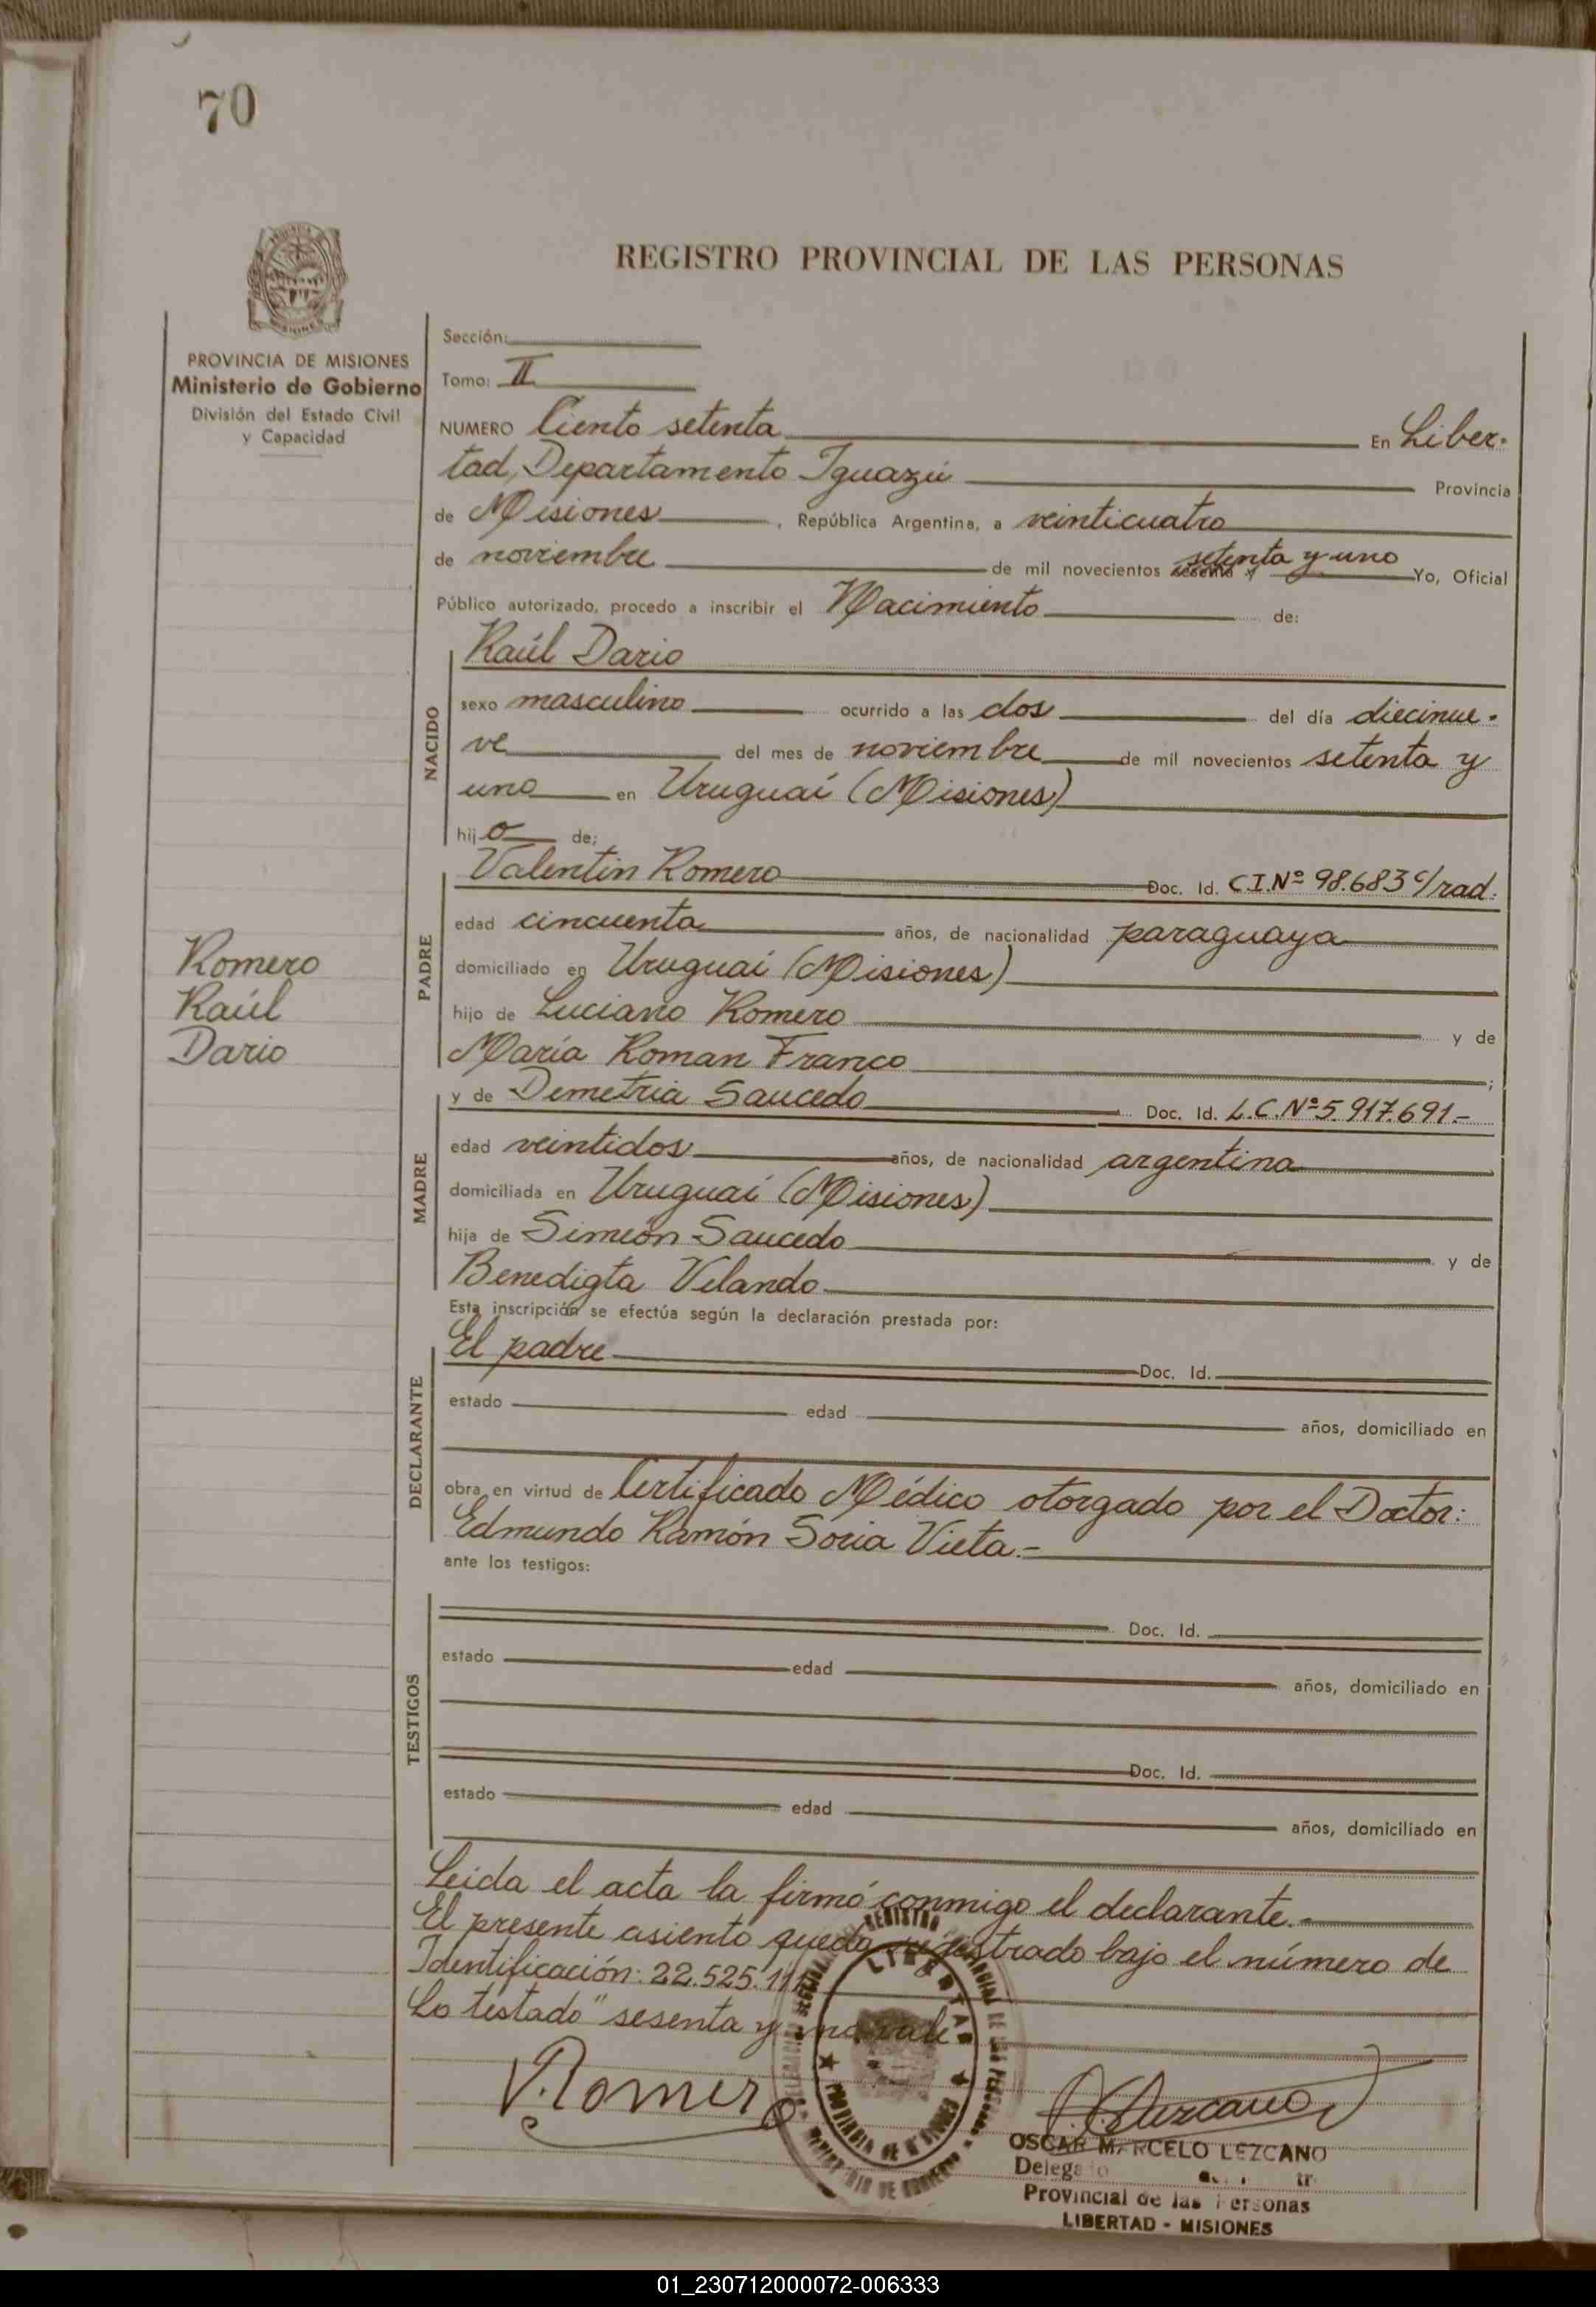 70
REGISTRO PROVINCIAL DE LAS PERSONAS
MISIONES
PROVINCIA DE MISIONES
Ministerio de Gobierno
División del Estado Civil
y Capacidad
Sección:
Tomo: II
NUMERO Ciento setenta En Liber-
tad, Departamento Iguazú Provincia
de Misiones, República Argentina, a veinticuatro
de noviembre de mil novecientos sesenta y setenta y uno Yo, Oficial
Público autorizado, procedo a inscribir el Nacimiento de:
NACIDO
Raúl Dario
sexo masculino ocurrido a las dos del día diecinue-
ve del mes de noviembre de mil novecientos setenta y
uno en Uruguaí (Misiones)
hijo de;
PADRE
Valentin Romero Doc. Id. C.I.Nº 98.683 c/rad.
edad cincuenta años, de nacionalidad paraguaya
domiciliado en Uruguaí (Misiones)
hijo de Luciano Romero y de
María Roman Franco ;
Romero
Raúl
Dario
MADRE
y de Demetria Saucedo Doc. Id. L.C.Nº 5.917.691.-
edad veintidos años, de nacionalidad argentina
domiciliada en Uruguaí (Misiones)
hija de Simeón Saucedo y de
Benedigta Velando
Esta inscripción se efectúa según la declaración prestada por:
DECLARANTE
El padre Doc. Id.
estado edad años, domiciliado en
obra en virtud de Certificado Médico otorgado por el Doctor:
Edmundo Ramón Soria Vieta.-
ante los testigos:
TESTIGOS
Doc. Id.
estado edad años, domiciliado en
Doc. Id.
estado edad años, domiciliado en
Leida el acta la firmó conmigo el declarante.-
El presente asiento queda registrado bajo el número de
Identificación: 22.525.11
Lo testado "sesenta y no vale
V. Romero
LIBERTAD
PROVINCIA DE MISIONES
OSCAR MARCELO LEZCANO
Delegado
Provincial de las Personas
LIBERTAD - MISIONES
01_230712000072-006333